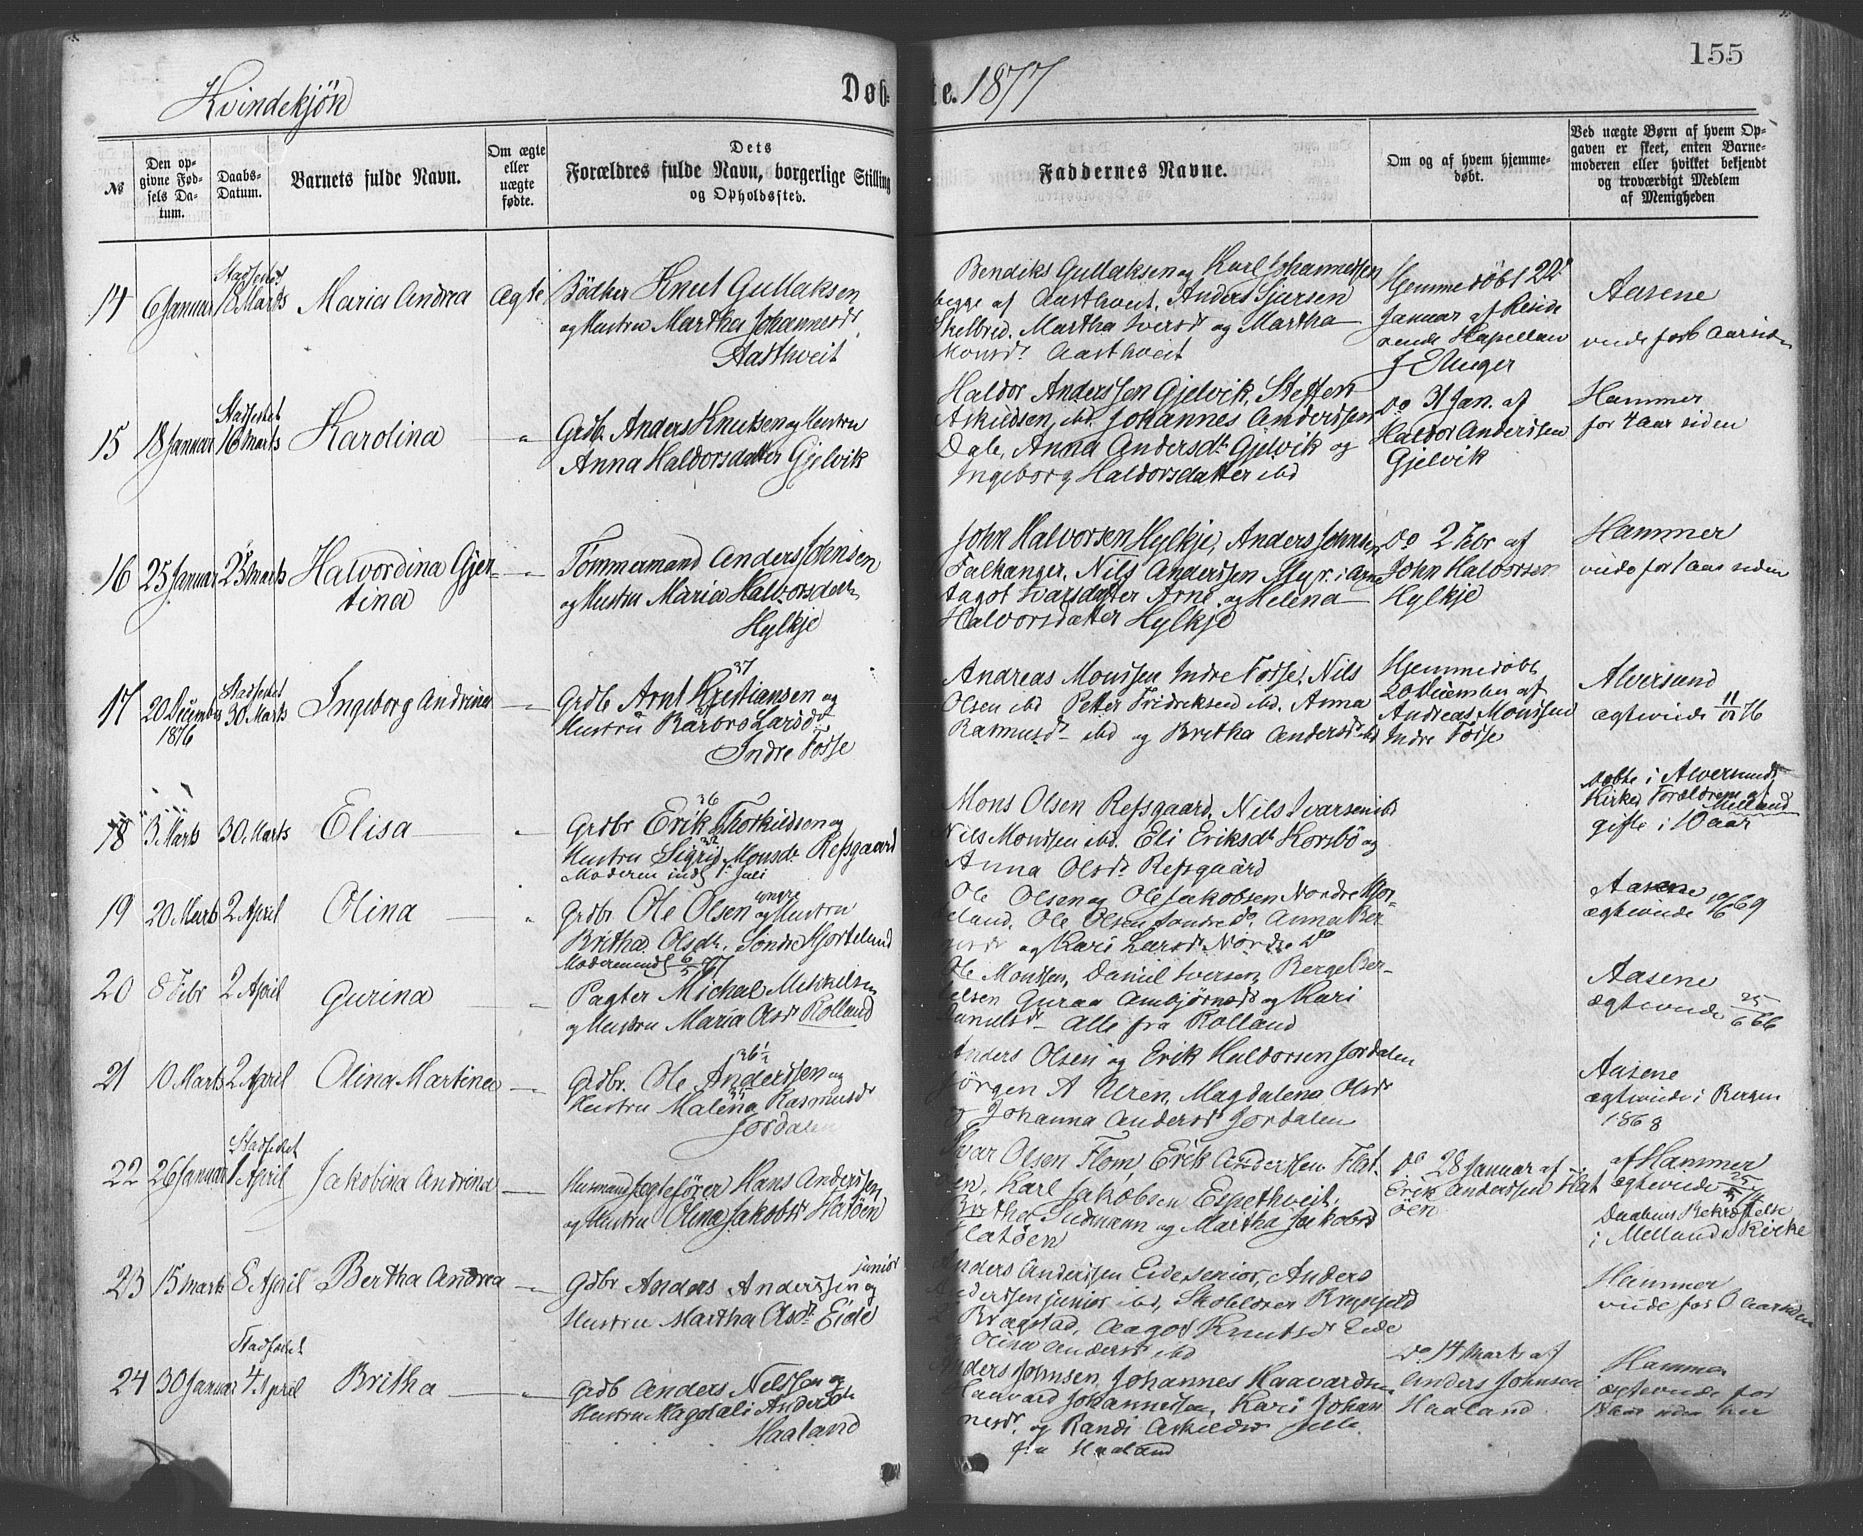 155
Kvindekjön
Døb- te. 1877
№
Den op-
givne Fød-
sels Da-
tum.
Daabs-
Datum.
Barnets fulde Navn.
Om ægte
eller
uægte
fødte.
Dets
Forældres fulde Navn, borgerlige Stilling
og Opholdssted.
Faddernes Navne.
Om og af hvem hjemme-
døbt.
Ved uægte Børn af hvem Op-
gaven er skeet, enten Barne-
moderen eller hvilket bekjendt
og troværdigt Medlem
af Menigheden
14
6 Januar
18 Marts
Maria Andrea
Ægte
Bödker Knut Gullaksen
og Hustru Martha Johannesdr
Aasthveit
Bendiks Gullaksen og Karl Johannessen
begge af Aasthveit, Anders Sjursen
Skelbred, Martha Iversdr og Martha
Monsdr Aasthveit
Hjemmedöbt 22
Januar af Resid
erende Kapellan
J E Unger
Aasene
15
18 Januar
Stadfestet
16 Marts
Karolina
"
Grdb. Anders Knutsen og Hustru
Anna Haldorsdatter Gjelvik
Haldor Anderssen Gjelvik, Steffen
Askildsen, ibd. Johannes Anderssen
Dale, Anna Andersdr Gjelvik og
Ingeborg Haldorsdatter ibd
Do 31 Jan. af
Haldor Anderssen
Gjelvik
Hammer
for 4 Aar siden
16
25 Januar
25 Marts
Halvordina Gjer-
tina
"
Tømmermand Anders Johnsen
og Hustru Maria Halvorsdatter
Hylkje
John Halvorsen Hylkje, Anders Johnsen
Falkanger, Nils Anderssen Styr i Arne
Halvorsdatter Hylkje
Do 2 Febr af
John Halvorsen
Hylkje
Hammer
17
20 December
1876
Stadfestet
30 Marts
Ingeborg Andrina
"
37
Grdb Arnt Kristiansen og
Hustru Barbro Larsdr
Indre Fosse
Andreas Monssen Indre Fosse, Nils
Olsen ibd Petter Fridriksen ibd. Anna
Rasmusdr ibd og Britha Andersdr ibd
Hjemmedöbt
20 December af
Andreas Monssen
Indre Fosse
Alversund
ægteviede 11/11 76
18
3 Marts
30 Marts
Elisa
"
36
Grdbr Erik Thorkildsen og
Hustru Sigrid Monsdr Refsgaard
Moderen indl. 1 Juli
Mons Olsen Refsgaard, Nils Ivarsen ibd
Nils Monssen ibd. Eli Eriksdr Korsbö og
Anna Olsdr Refsgaard
Döbte i Alversunds
Kirke, Forældrene af
Melland
gifte i 10 Aar
19
20 Marts
2 April
Olina
"
Grdbr. Ole Olsen yngre og Hustru
Britha Olsdr. Söndre Hjortelund
Ole Olsen og Ole Jakobsen Nordre Hjor-
teland, Ole Olsen Söndre do. Anna Ber-
og Kari Larsdr Nordre Do
Aasene
ægteviede 10/6 69
20
8 Febr
2 April
Gurina
"
Pagter Michal Mikkelsen
og Hustru Maria Olsdr Rolland
Ole Monssen, Daniel Iversen, Berge Ber-
Guraa Ambjörnsdr og Kari
Danielsdr Alle fra Rolland
Aasene
ægteviede 25/6 66
21
10 Marts
2 April
Olina Martina
36½
Grdbr. Ole Anderssen og
35
Hustru Malena Rasmusdr
Jordalen
Anders Olsen og Erik Haldorsen Jordalen
Jörgen A Uren, Magdalena Olsdr
og Johanna Andersdr Jordalen
Aasene
ægteviede i Bergen
1868
22
26 Januar
Stadfestet
1 April
Jakobina Andrina
Husmand Jægtefører Hans Anderssen
og Hustru Olina Jakobsdr Flatöen
Ivar Olsen Flom, Erik Anderssen Flat-
öen, Karl Jakobsen Espethveit,
og Martha Jakobsdr
Flatöen
Do 28 Januar af
Erik Anderssen Flat
öen
af Hammer
ægteviede
Daabens Bekræftelse
i Mellands Kirke
23
15 Marts
8 April
Bertha Andrea
junior
Gdbr Anders Anderssen og
Hustru Martha Olsdr Eide
Anders Anderssen Eide senior, Anders
Anderssen junior ibd, Skolelærer Brynjeld
Brægstad, Aagot Knutsdr Eide
og Olina Andersdr ibd
Hammer
24
30 Januar
Stadfestet
4 April
Britha
Grdb Anders Nilssen og
Hustru Magdali Andersdr
Haaland
Anders Johnsen, Johannes Haavardsen
Haavard Johannessen, Kari Johan
nesdr. og Randi Askildsdr Alle
fra Haaland
Do 14 Marts af
Anders Johnsen
Haaland
Hammer
ægteviede for